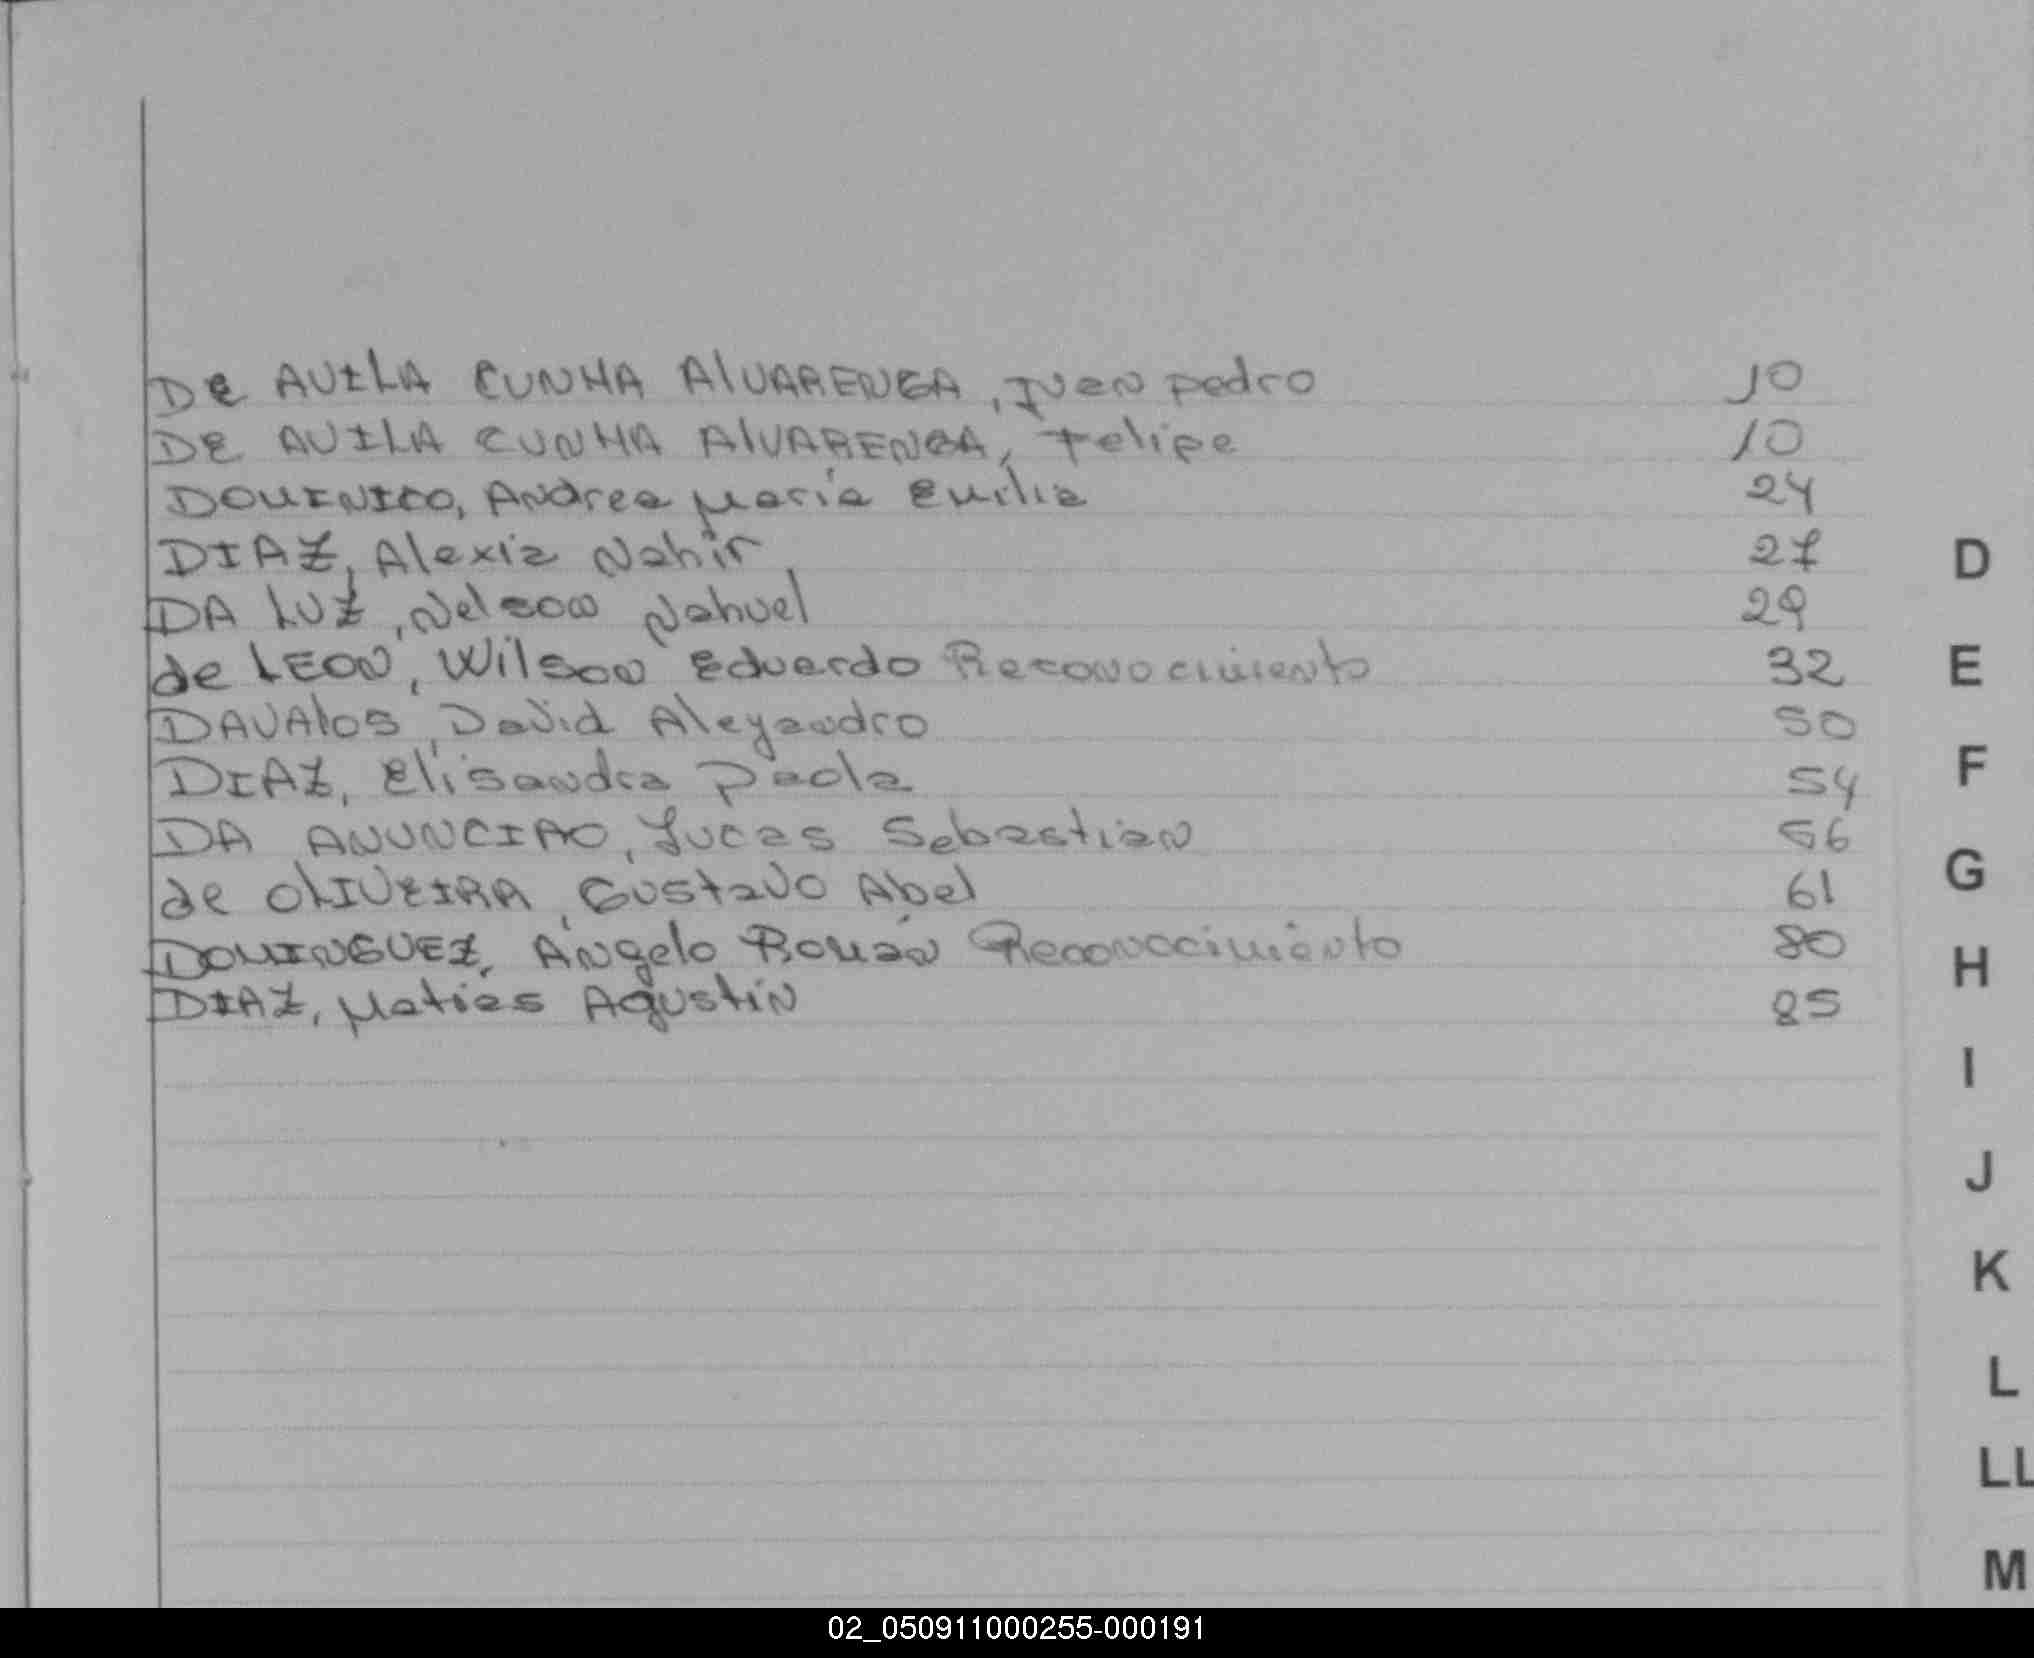 DE AVILA CUNHA AlVARENGA, Iven pedro 10
DE AVILA CUNHA AlVARENGA, Felipe 10
DOMINICO, Andrea María Emilia 24
DIAZ, Alexia Nahir 27
DA LUZ, Nelson Nahuel 29
de LEON, Wilson Eduardo Reconocimiento 32
DAVAlOS, David Aleyandro 50
DIAZ, Elisandra Paola 54
DA ANUNCIAO, Lucas Sebastian 56
de OLIVEIRA, Gustavo Abel 61
DOMINGUEZ, Angelo Román Reconocimiento 80
DIAZ, Matías Agustín 85
D
E
F
G
H
I
J
K
L
LL
M
02_050911000255-000191